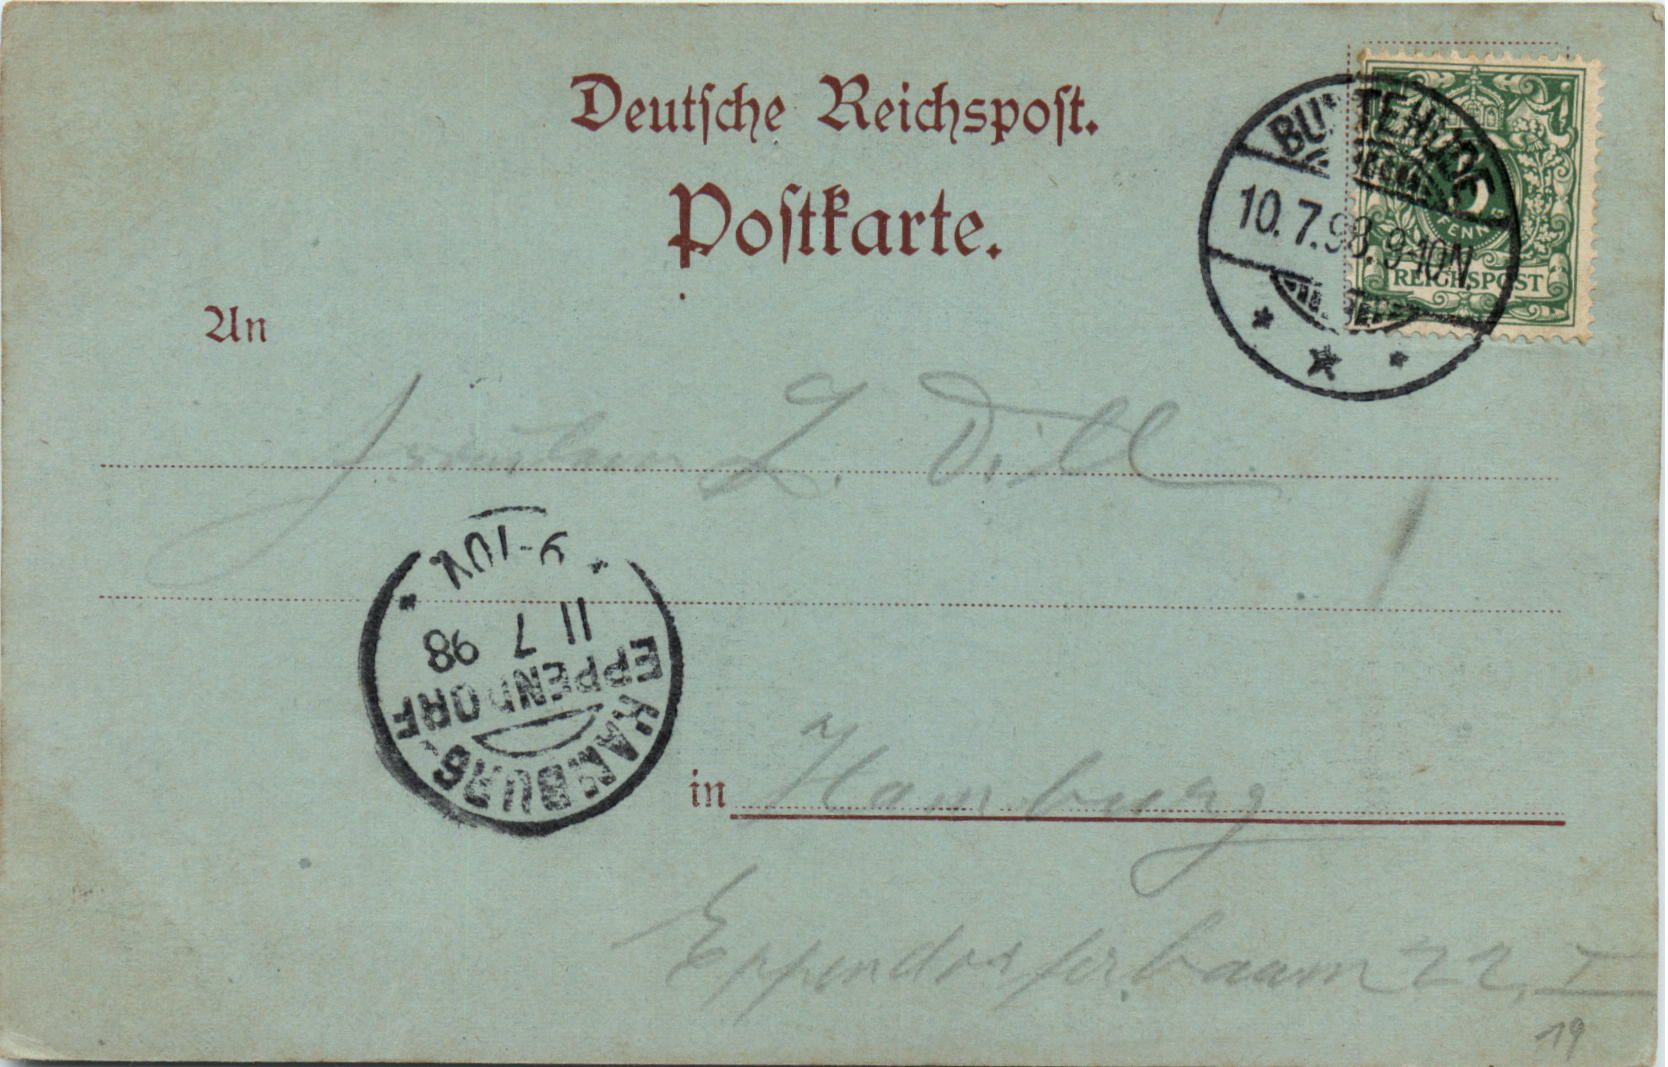 Deutsche Reichspost.
Postkarte.
BUXTEHUDE
10.7.98. 9-10N
5
PFENNIG
REICHSPOST
An
Fräulein L. Dill
9-10V.
11 7 98
EPPENDORF
HAMBURG
in Hamburg
Eppendorferbaum 22, I
19